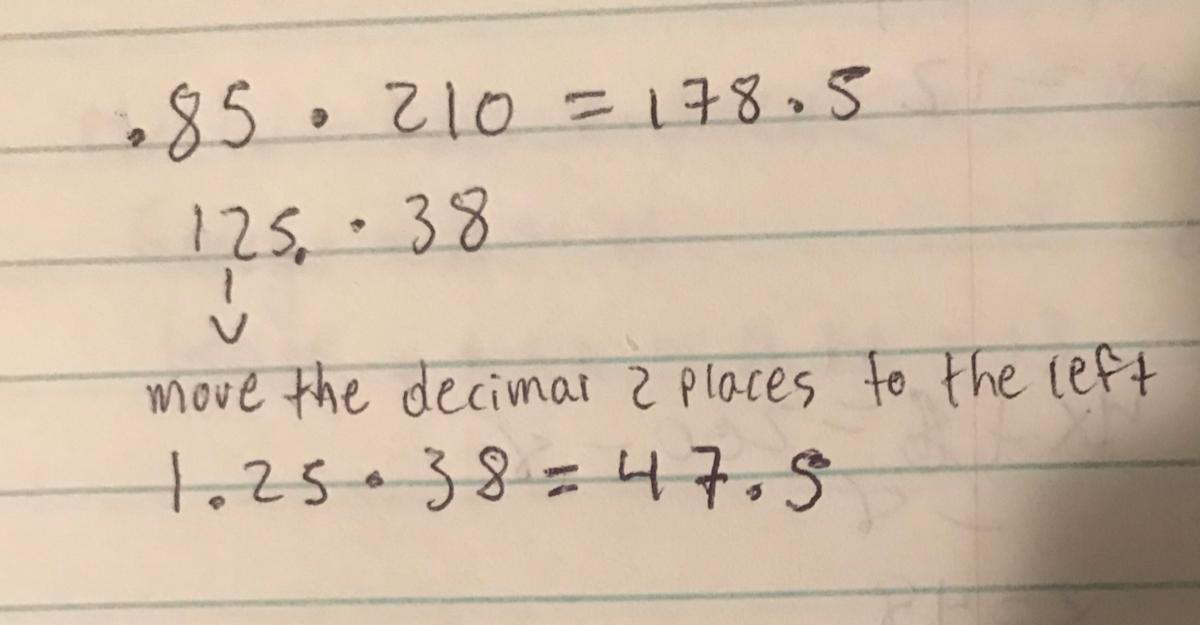 .85 · 210 = 178.5
125. · 38
move the decimal 2 places to the left
1.25 · 38 = 47.5